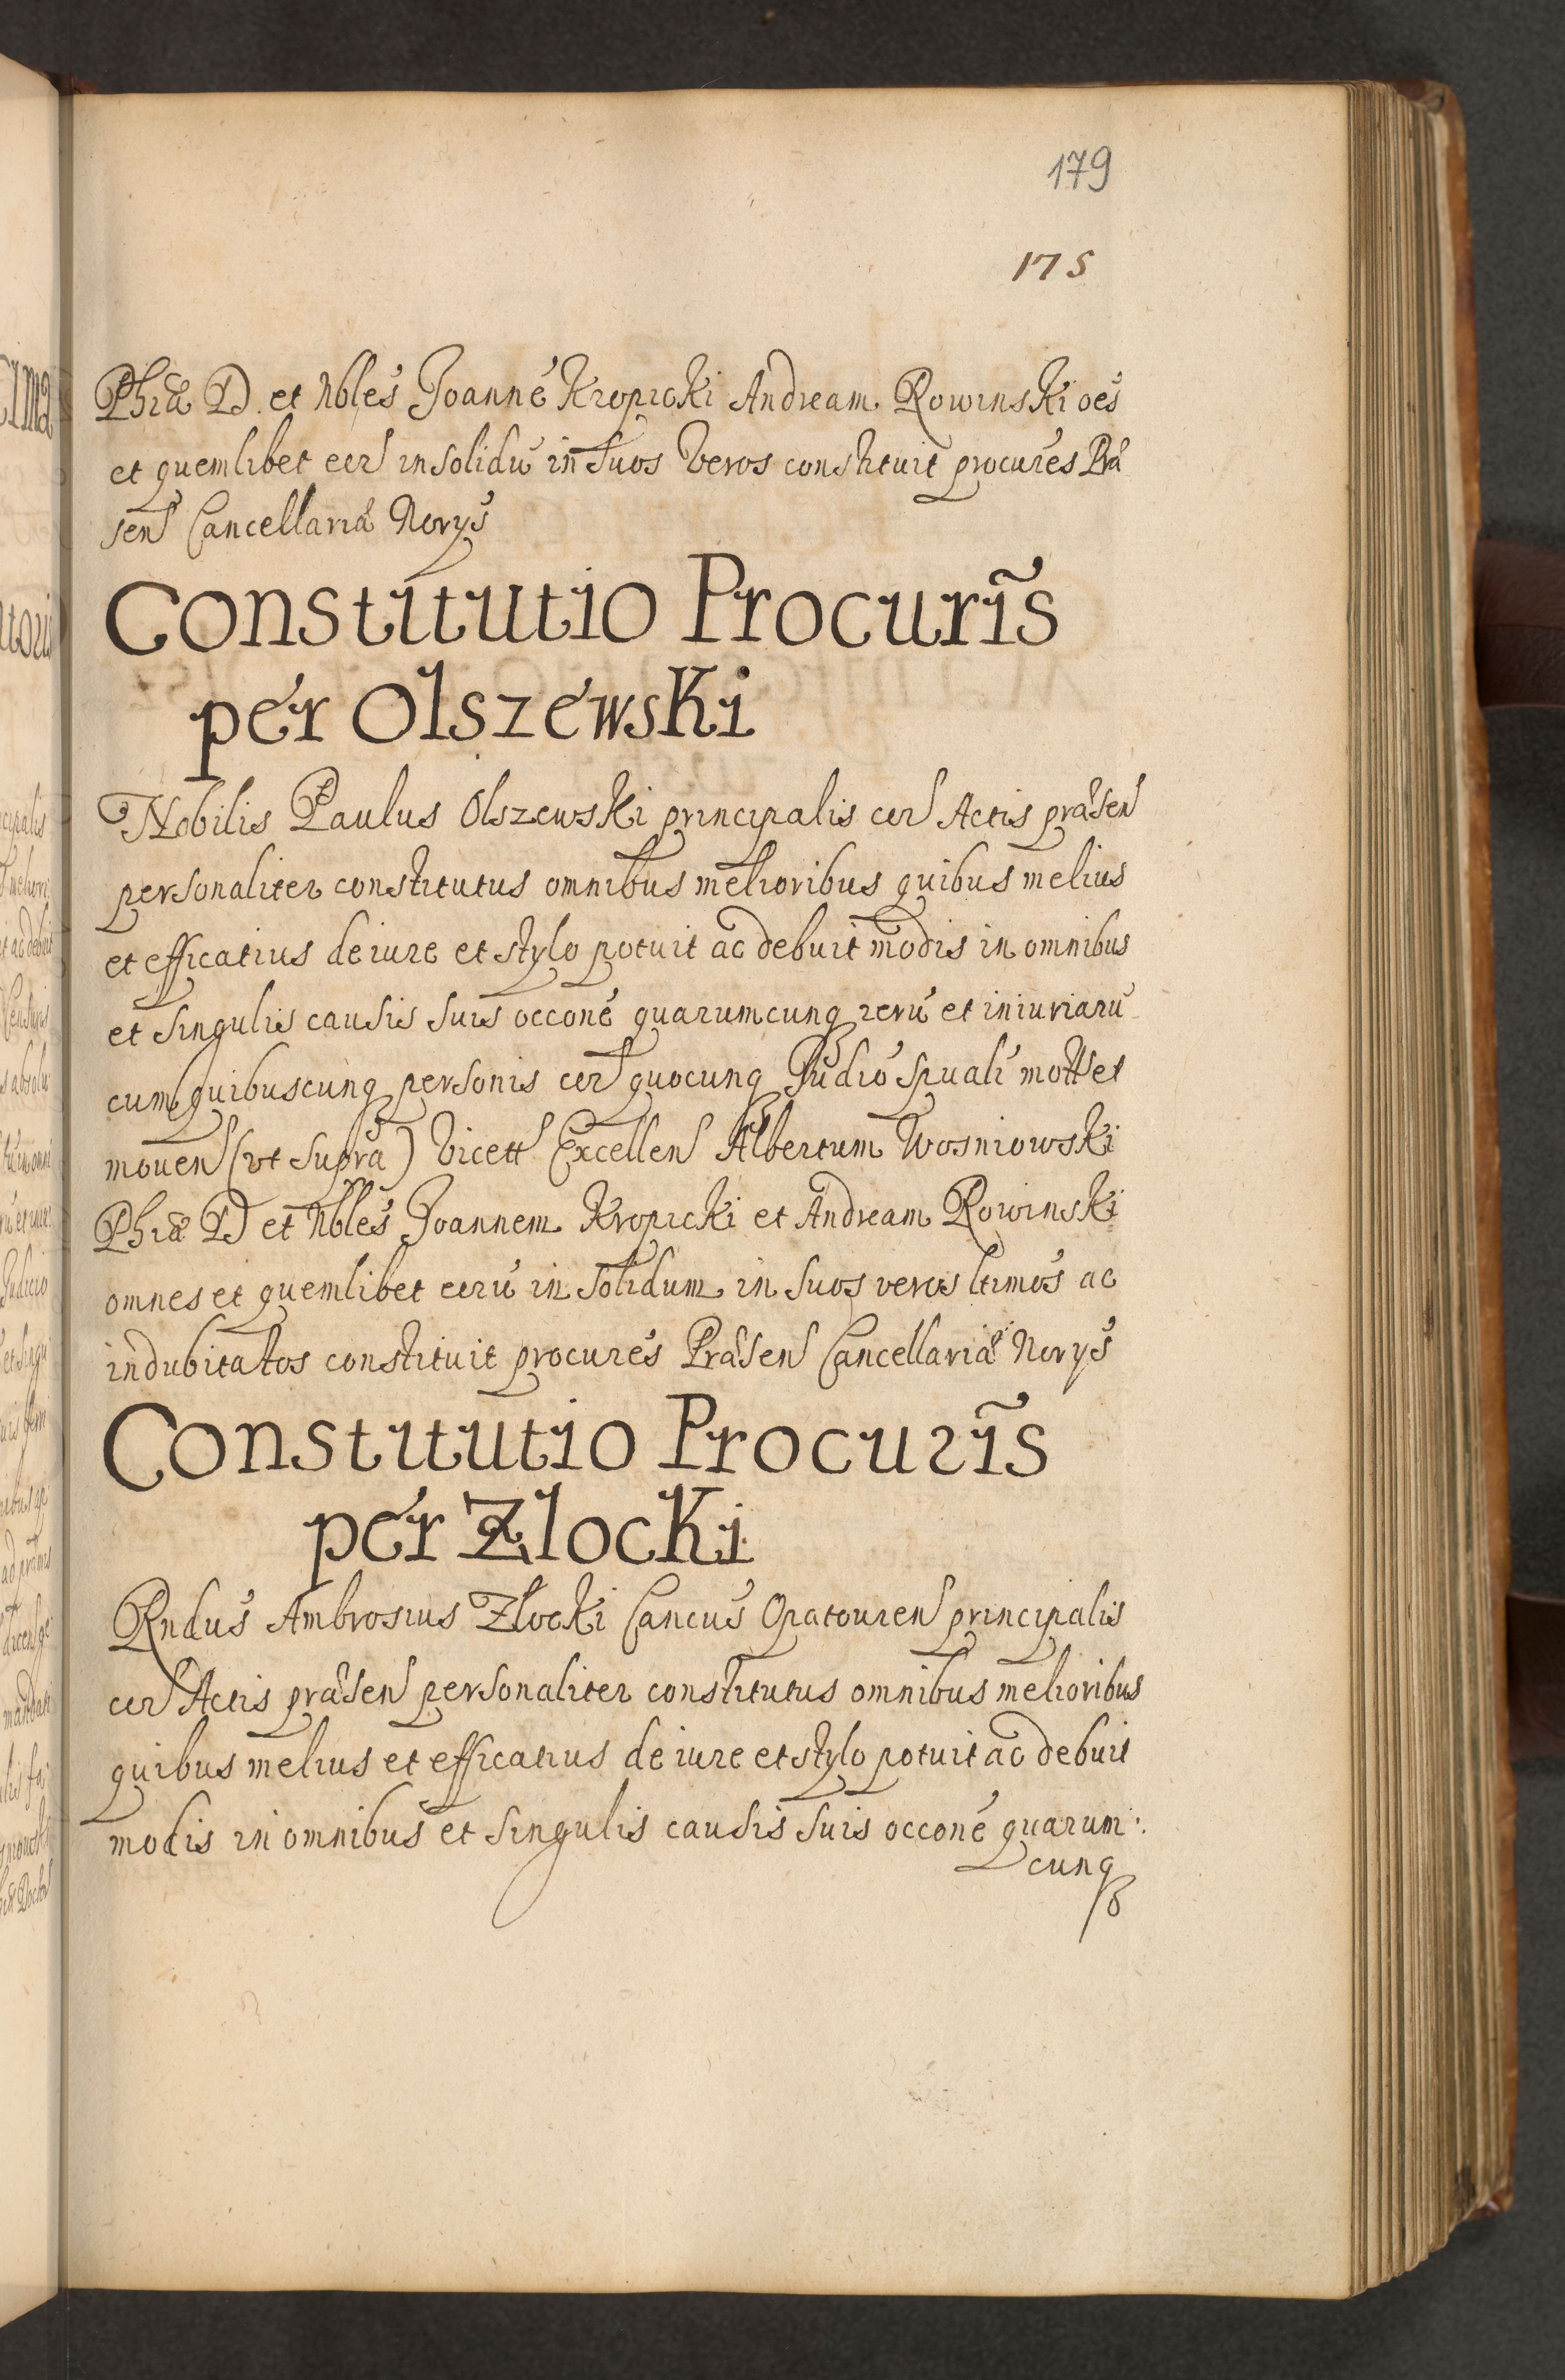 179
175
Phiæ D. et Nbles Joannē Kropicki Andream Rowinski oēs
et quemlibet eor insolidū in suos veros constituit procures Præ
sen Cancellariæ Norys
Constitutio Procuris̃
per Olszewski
Nobilis Paulus Olszewski principalis cor Actis præsen
personaliter constitutus omnibus melioribus quibus melius
et efficatius de iure et stylo potuit ac debuit modis in omnibus
et singulis causis suis occone quarumcunq rerū et iniuriarū
cum quibuscunq personis cor quocunq Judio spuali mott et
mouen (vt supra) Vicett Excellen Albertum Wosniowski
Phiæ D et Nbles Joannem Kropicki et Andream Rowinski
omnes et quemlibet eorū in solidum in suos veros ltimos ac
indubitatos constituit procures Præsen Cancellariæ Norys
Constitutio Procuris̃
per Zlocki
Rndus Ambrosius Zlocki Cancus Opatouien principalis
cor Actis præsen personaliter constitutus omnibus melioribus
quibus melius et efficatius de iure et stylo potuit ac debuit
modis in omnibus et singulis causis suis occone quarum
cunq